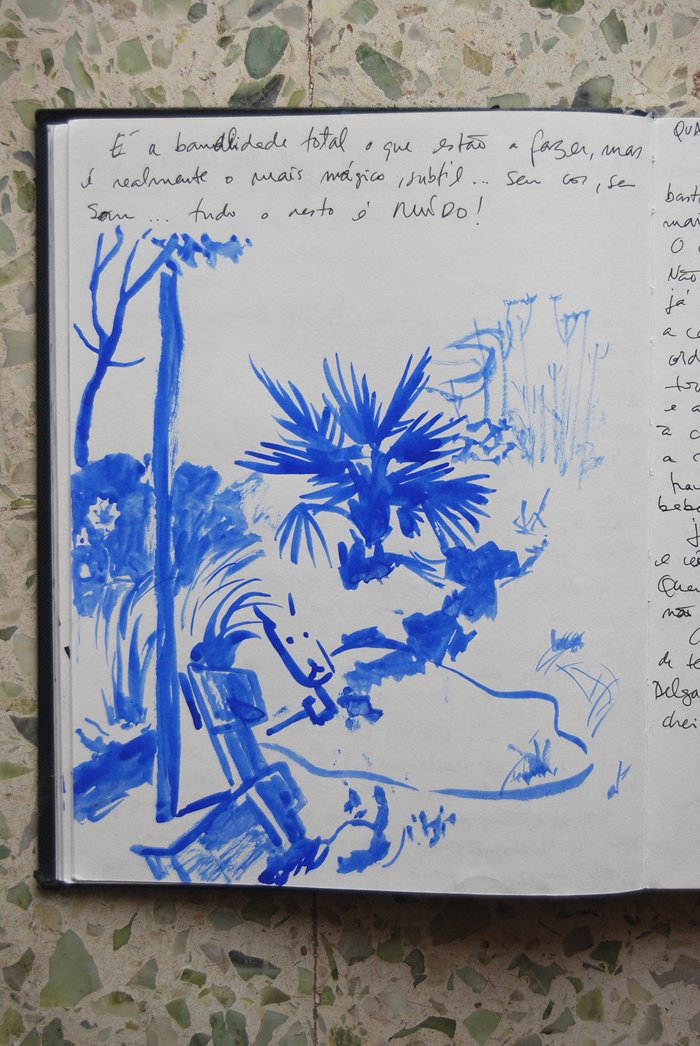 É a banalidade total o que estão a fazer, mas
é realmente o mais mágico, subtil... sem cor, sem
som... tudo o resto é RUÍDO!
QUA
bast
mai
O
Não
já
a ca
ord
tou
e a
a c
a
beb
e
Quer
não
de te
Delga
chei